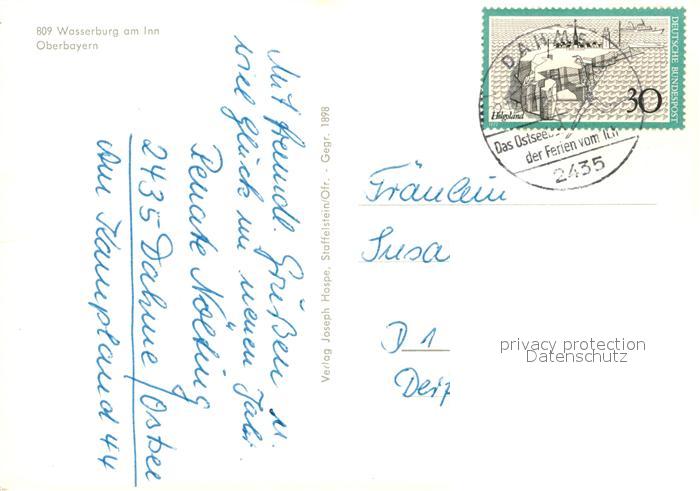 809 Wasserburg am Inn
Oberbayern
Mit freundl. Grüßen u.
viel Glück im neuen Jahr.
Renate Nölting
2435 Dahme/Ostsee
Am Kampland 44
Verlag Joseph Hospe, Staffelstein/Ofr. - Gegr. 1898
DEUTSCHE BUNDESPOST
Helgoland
30
DAHME
Das Ostseebad
der Ferien vom Ich
2435
Fräulein
Susa
D 1
privacy protection
Datenschutz